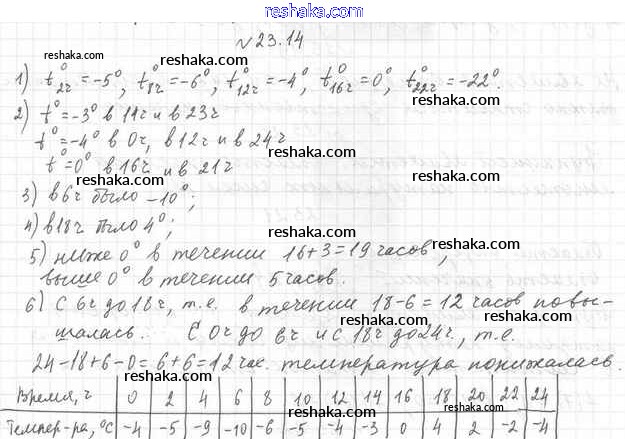 reshaka.com
№ 23.14
1) t°₂ч = -5°, t°₈ч = -6°, t°₁₂ч = -4°, t°₁₆ч = 0°, t°₂₂ч = -22°.
2) t° = -3° в 14ч и в 23ч
t° = -4° в 0ч, в 12ч и в 24ч
t° = 0° в 16ч и в 21ч
3) в 6ч было -10°;
4) в 18ч было 4°;
5) ниже 0° в течении 16+3=19 часов,
выше 0° в течении 5 часов.
6) С 6ч до 18ч, т.е. в течении 18-6=12 часов повы-
шалась. С 0ч до 6ч и с 18ч до 24ч, т.е.
24-18+6-0=6+6=12 час. температура понижалась.
Время, ч 0 2 4 6 8 10 12 14 16 18 20 22 24
Темпер-ра, °С -4 -5 -9 -10 -6 -5 -4 -3 0 4 2 -2 -4
reshaka.com
reshaka.com
reshaka.com
reshaka.com
reshaka.com
reshaka.com
reshaka.com
reshaka.com
reshaka.com
reshaka.com
reshaka.com
reshaka.com
reshaka.com